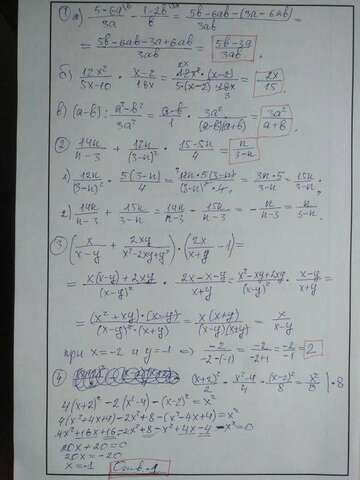 ① а) (5-6a^{\b)/(3a) - (1-2b^{\3a})/b = (5b-6ab-(3a-6ab))/(3ab) =
= (5b-6ab-3a+6ab)/(3ab) = (5b-3a)/(3ab).
б) 12x²/(5x-10) · (x-2)/(18x) = (12x²·(x-2))/(5·(x-2)·18x) = 2x/15.
в) (a-b) : (a²-b²)/(3a²) = (a-b)/1 · 3a²/((a-b)(a+b)) = 3a²/(a+b).
② 14n/(n-3) + 12n/(3-n)² · (15-5n)/4 = n/(3-n)
1) 12n/(3-n)² · 5(3-n)/4 = (12n·5(3-n))/((3-n)²·4) = 3n·5/(3-n) = 15n/(3-n).
2) 14n/(n-3) + 15n/(3-n) = 14n/(n-3) - 15n/(n-3) = -n/(n-3) = n/(3-n).
③ (x/(x-y) + 2xy/(x²-2xy+y²)) · (2x/(x+y) - 1) =
= (x(x-y)+2xy)/(x-y)² · (2x-x-y)/(x+y) = (x²-xy+2xy)/(x-y)² · (x-y)/(x+y) =
= ((x²+xy)·(x-y))/((x-y)²·(x+y)) = x(x+y)/((x-y)(x+y)) = x/(x-y)
при x=-2 и y=-1 ⇒ -2/(-2-(-1)) = -2/(-2+1) = -2/-1 = 2
④ (x+2)²/2 - (x²-4)/4 - (x-2)²/8 = x²/8 | · 8
4(x+2)² - 2(x²-4) - (x-2)² = x²
4(x²+4x+4) - 2x²+8 - (x²-4x+4) = x²
4x²+16x+16-2x²+8-x²+4x-4-x²=0
20x+20=0
20x=-20
x=-1